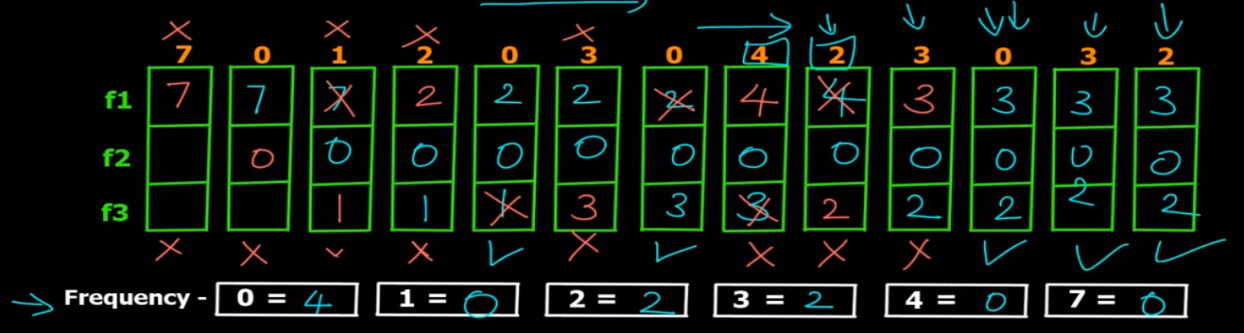 7 0 1 2 0 3 0 4 2 3 0 3 2
f1 7 7 7 2 2 2 2 4 4 3 3 3 3
f2 0 0 0 0 0 0 0 0 0 0 0 0
f3 1 1 1 3 3 3 2 2 2 2 2
Frequency - 0 = 4 1 = 0 2 = 2 3 = 2 4 = 0 7 = 0